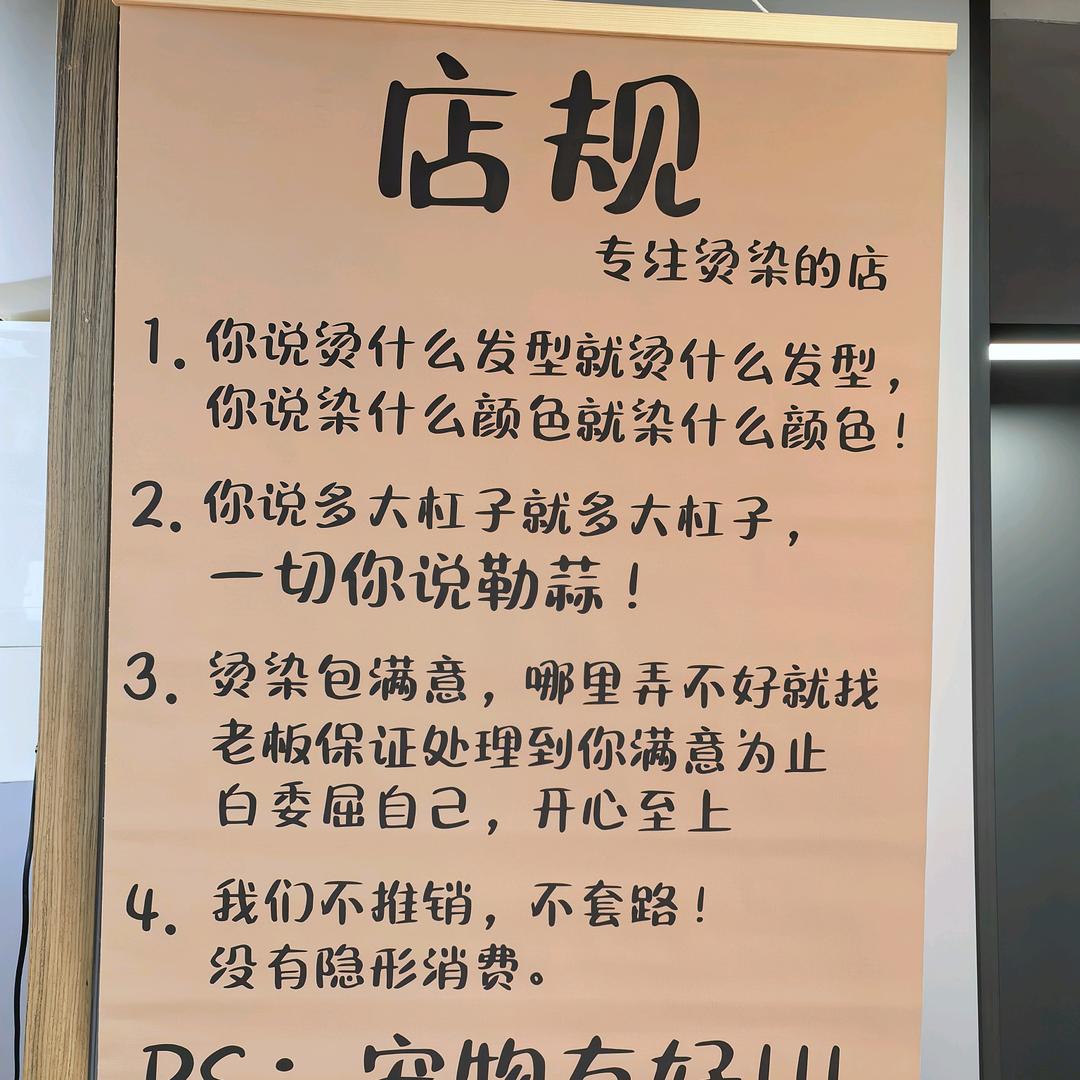 店规
专注烫染的店
1. 你说烫什么发型就烫什么发型，
你说染什么颜色就染什么颜色！
2. 你说多大杠子就多大杠子，
一切你说勒蒜！
3. 烫染包满意，哪里弄不好就找
老板保证处理到你满意为止
白委屈自己，开心至上
4. 我们不推销，不套路！
没有隐形消费。
PS：宠物友好!!!